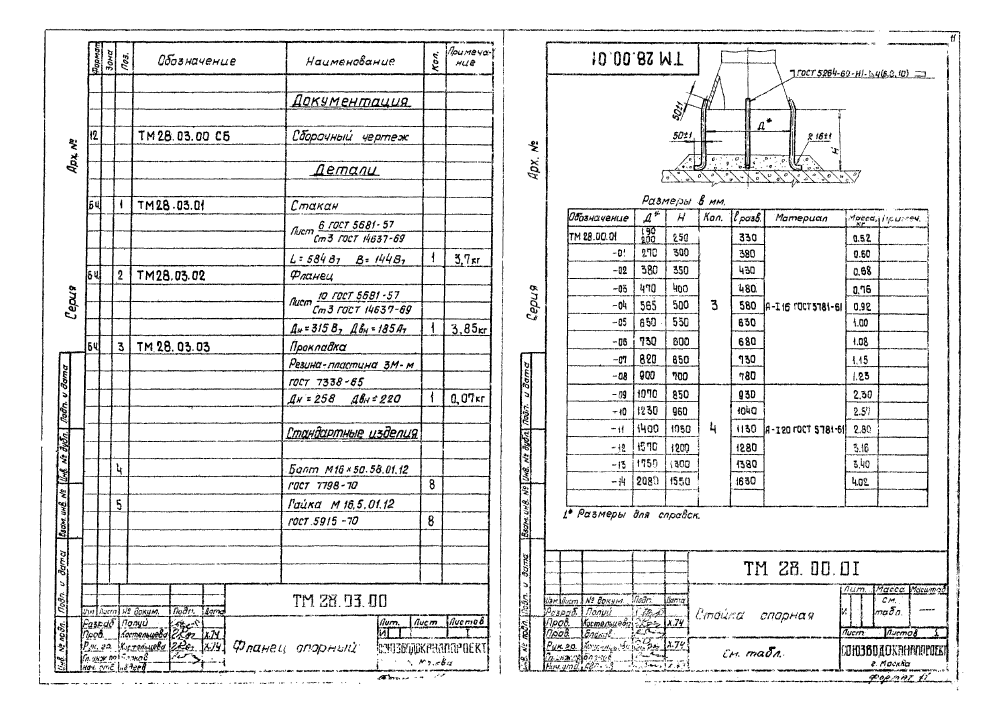 Формат Зона Поз. Обозначение Наименование Кол. Примечание
Документация
12 ТМ 28.03.00 СБ Сборочный чертеж
Детали
БЧ 1 ТМ28.03.01 Стакан
Лист 6 ГОСТ 5681-57
Ст3 ГОСТ 14637-69
L=584В7 В=144В7 1 3,7кг
БЧ 2 ТМ28.03.02 Фланец
Лист 10 ГОСТ 5681-57
Ст3 ГОСТ 14637-69
Дн=315В7 Двн=185А7 1 3,85кг
БЧ 3 ТМ 28.03.03 Прокладка
Резина-пластина 3М-м
ГОСТ 7338-65
Дн=258 Двн=220 1 0,07кг
Стандартные изделия
4 Болт М16×50.58.01.12
ГОСТ 7798-70 8
5 Гайка М 16.5.01.12
ГОСТ.5915-70 8
Арх. №
Серия
Подп. и дата
Инв. № дубл.
Взам. инв. №
Подп. и дата
Инв. № подл.
ТМ 28.03.00
Изм Лист № докум. Подп. Дата
Разраб Папуй
Пров. Костельцева Х.74
Рук. гр. Костельцева Х.74
Фланец опорный
Лит. Лист Листов
И 1
СОЮЗВОДОКАНАЛПРОЕКТ
г. Москва
11
ТМ 28.00.01
ГОСТ 5264-69-Н1-
50±1
50±1
Д*
R 16±1
Н
Размеры в мм.
Обозначение Д* Н Кол. l разв. Материал Масса, кг Примеч.
ТМ 28.00.01 190 200 250 330 0.52
-01 270 300 380 0.60
-02 380 350 430 0.68
-03 470 400 480 0.76
-04 565 500 3 580 А-I 16 ГОСТ 5781-61 0.92
-05 650 550 630 1.00
-06 730 600 680 1.08
-07 820 650 730 1.15
-08 900 700 780 1.23
-09 1070 850 930 2.30
-10 1230 960 1040 2.57
-11 1400 1050 4 1130 А-I20 ГОСТ 5781-61 2.80
-12 1570 1200 1280 3.16
-13 1750 1300 1380 3.40
-14 2080 1550 1630 4.02
1* Размеры для справок.
Арх. №
Серия
Подп. и дата
Инв. № дубл.
Взам. инв. №
Подп. и дата
Инв. № подл.
ТМ 28.00.01
Изм Лист № докум. Подп. Дата
Разраб. Папуй
Пров. Костельцева Х.74
Пров.
Рук. гр. Х.74
Стойка опорная
см. табл.
Лит. Масса Масштаб
И. см. табл. —
Лист Листов 1
СОЮЗВОДОКАНАЛПРОЕКТ
г. Москва
Формат 11